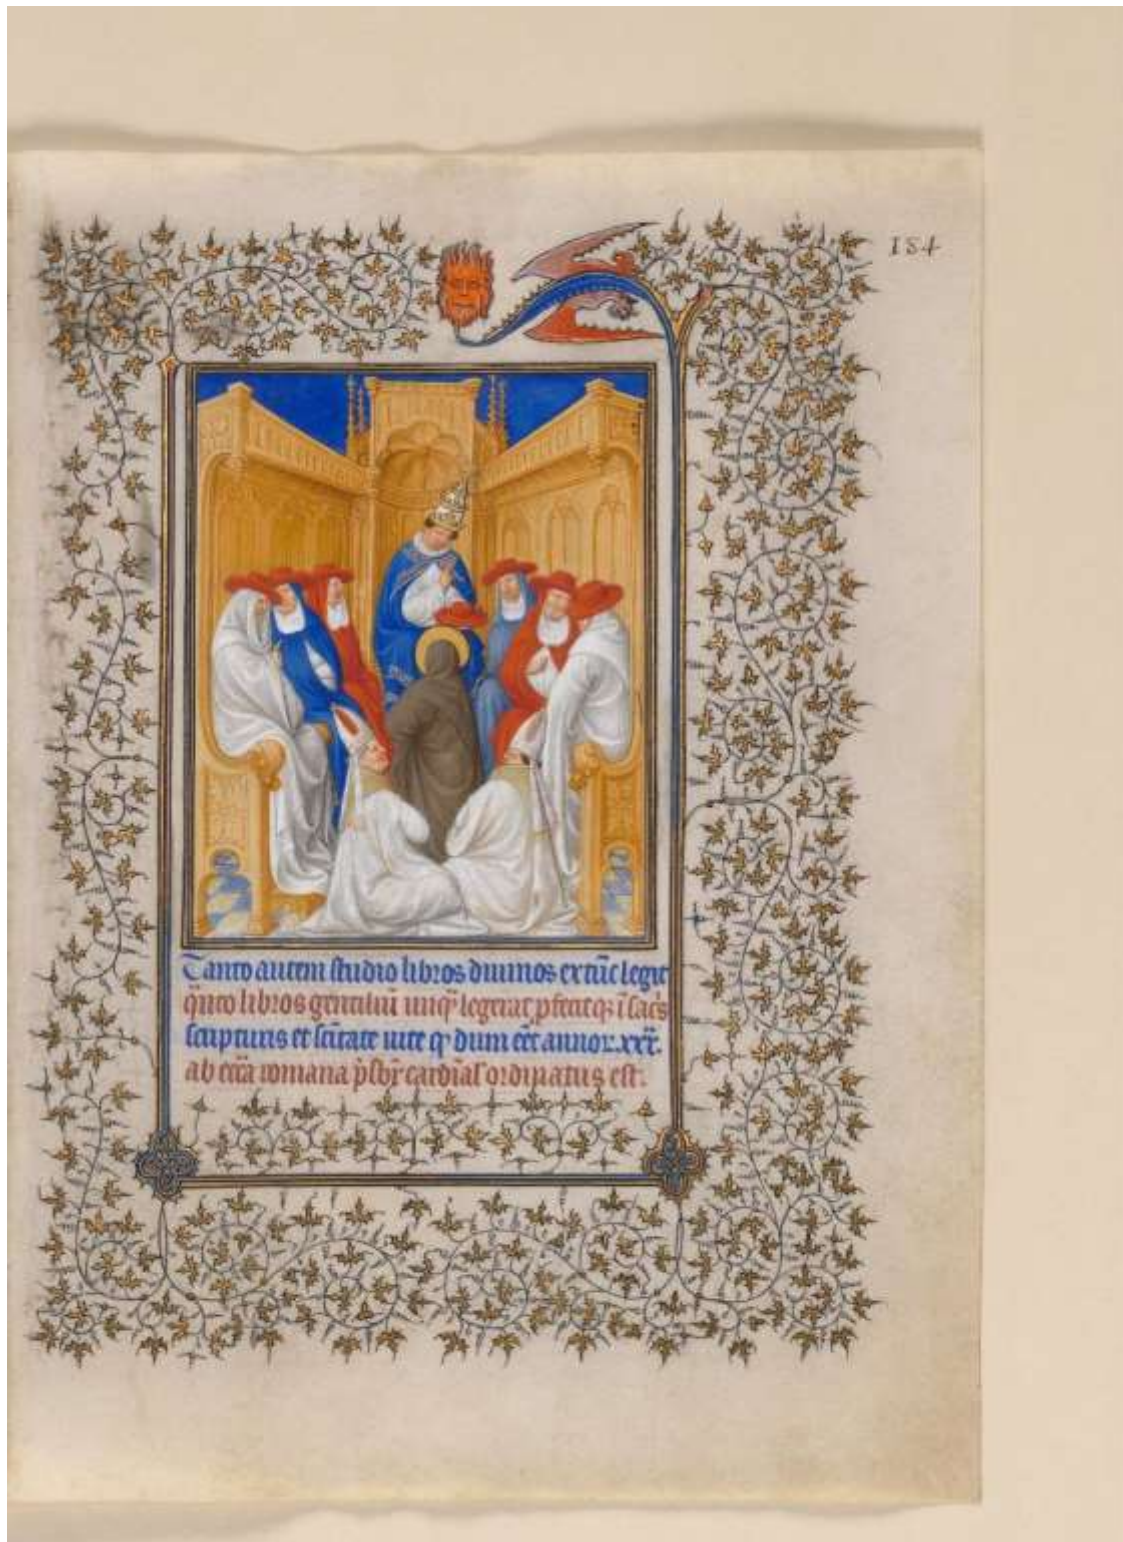 184
Tanto autem studio libros diuinos extūc legit
q̄nto libros gentiliū unq̄ legerat pfecitq; ī sac̄s
scripturis et sc̄itate uite q̄ dum eēt annoꝝ.xxx.
ab ecc̄a romana p̄sbr̄ cardīal' ordinatus est.